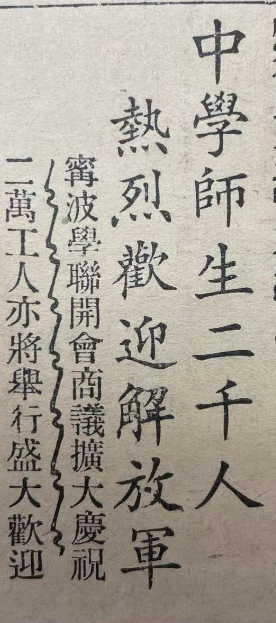 中學師生二千人
熱烈歡迎解放軍
甯波學聯開會商議擴大慶祝
二萬工人亦將舉行盛大歡迎